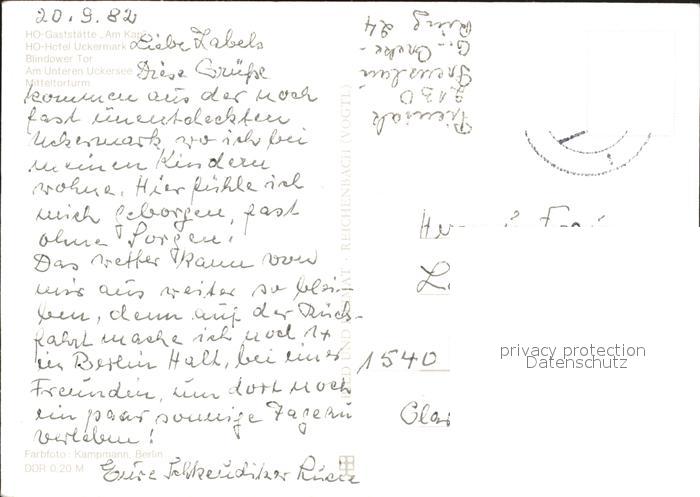 20.9.82
HO-Gaststätte „Am Kap
HO-Hotel Uckermark
Blindower Tor
Am Unteren Uckersee
Mitteltorturm
Liebe Zabels
Diese Grüße
kommen aus der noch
fast unentdeckten
Uckermark, wo ich bei
meinen Kindern
wohne. Hier fühle ich
mich geborgen, fast
ohne Sorgen!
Das Wetter kann von
mir aus weiter so blei-
ben, denn auf der Rück-
fahrt mache ich noch 1x
in Berlin Halt, bei einer
Freundin, um dort noch
ein paar sonnige Tage zu
verleben!
Eure Schkeuditzer
Farbfoto: Kampmann, Berlin
DDR 0,20 M
BILD UND HEIMAT · REICHENBACH (VOGTL)
2130
Prenzlau
Ring 24
1540
privacy protection
Datenschutz